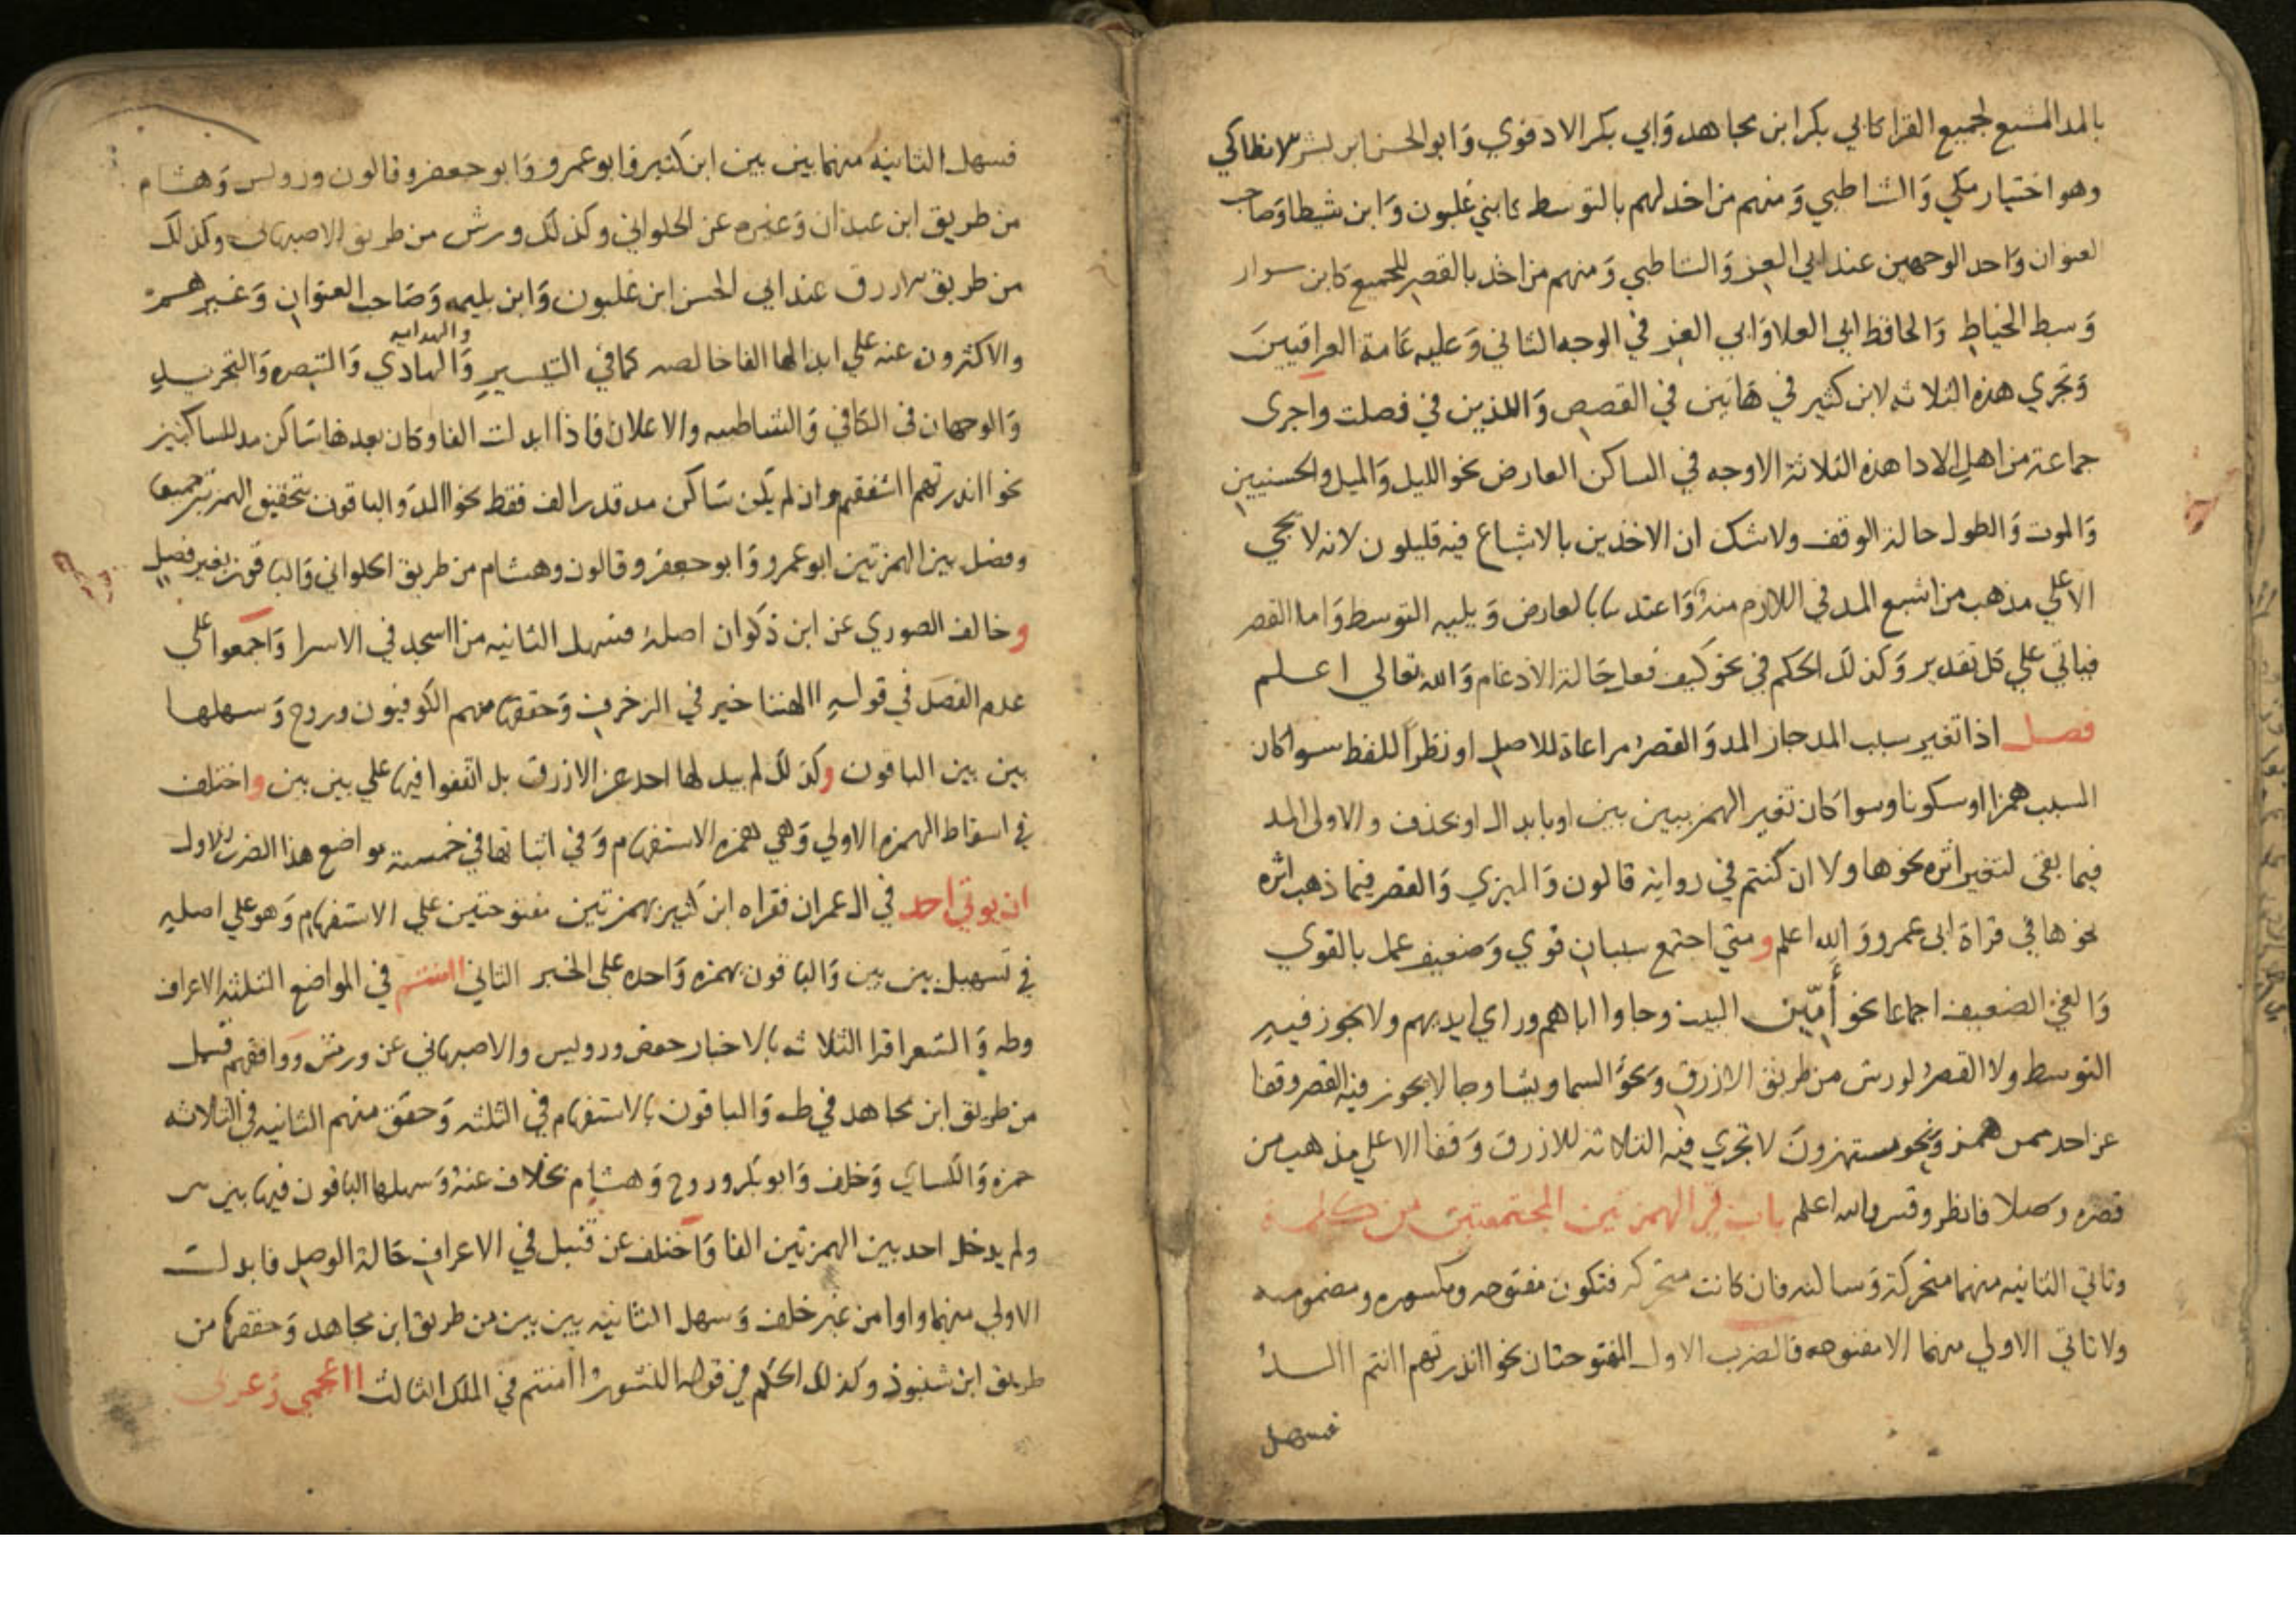 بالمد المشبع لجميع القرا كابي بكر ابن مجاهد وَابي بكر الادفوي وَابو الحسن ابن بشر الانطاكي
وهو اختيار مكي وَالشاطبي وَمنهم من اخذ لهم بالتوسط كابني غلبون وَابن شيطا وَصاحب
العنوان وَاحد الوجهين عند ابي العز وَالشاطبي وَمنهم من اخذ بالقصر للجميع كابن سوار
وَسبط الخياط وَالحافظ ابي العلا وَابي العز في الوجه الثاني وَعليه عَامة العراقيين
وَتجري هذه الثلاثه لابن كثير في هَاتين في القصص وَاللذين في فصلت واجرى
جماعة من اهل الادا هذه الثلاثة الاوجه في الساكن العارض نحو الليل وَالميل والحسنيين
وَالموت وَالطول حالة الوقف ولا شك ان الاخذين بالاشباع فيه قليلون لانه لا يجي
الا علي مذهب من اشبع المد في اللازم منهُ وَاعتد بالعارض وَيليه التوسط وَاما القصر
فياتي علي كل تقدير وَكذلك الحكم في نحو كيف فعل حَالة الادغام وَالله تعالي اعلم
فصل اذا تغير سبب المد جاز المد وَالقصرُ مراعاة للاصل او نظراً للفظ سوا كان
السبب همزا او سكونا وسوا كان تغير الهمز ببين بين او بابدال او بحذف والاولى المد
فيما بقى لتغير اثره نحو هاولا ان كنتم في رواية قالون وَالبزي وَالقصر فيما ذهب اثره
نحو ها في قراة ابى عمرو وَالله اعلم ومتي اجتمع سببان قوي وَضعيف عمل بالقوي
وَالغي الضعيف اجماعا نحو أمّين البيت وجاوا اباهم وراي ايديهم ولا يجوز فيه
التوسط ولا القصرُ لورش من طريق الازرق وَنحوُ السما ويشا وجا لا يجوز فيه القصر وقفا
عن احد ممن همز وَنحو مستهزون لا تجري فيه الثلاثة للازرق وَقفا الا علي مذهب من
قصره وصلا فانظر وقس والله اعلم باب في الهمزتين المجتمعتين من كلمة
وتاتي الثانيه منهما متحركة وَساكنه فان كانت متحركه فتكون مفتوحه ومكسوره ومضمومه
ولا تاتي الاولي منهما الا مفتوحه فالضرب الاول المفتوحتان نحو ااندرتهم اانتم االد
فسهل
فسهل الثانيه منهما بين بين ابن كثير وَابو عمرو وَابو جعفر وقالون ورويس وَهشام
من طريق ابن عبدان وَغيره عن الحلواني وكذلك ورش من طريق الاصبهاني وكذلك
من طريق الازرق عند ابي الحسن ابن غلبون وَابن بليمه وَصَاحب العنوان وَغيرهم
والاكثرون عنه علي ابدالها الفا خالصه كما في التيسير وَالهادي والهدايه وَالتبصره وَالتجريد
وَالوجهان في الكافي وَالشاطبيه والاعلان فاذا ابدلت الفا وكان بعدها سَاكن مد للساكنين
نحو ااندرتهم ااشفقتم وان لم يكن سَاكن مد قدر الف فقط نحو االد والباقون بتحقيق الهمزتين جميعا
وفصل بين الهمزتين ابو عمرو وَابو جعفر وقالون وهشام من طريق الحلواني وَالباقون بغير فصل
وخالف الصوري عن ابن ذكوان اصلهُ فسهل الثانيه من ااسجد في الاسرا وَاجمعوا علي
عدم الفصل في قوله االهتنا خير في الزخرف وَحققها منهم الكوفيون وروح وَسهلها
بين بين الباقون وكذلك لم يبدلها احد عن الازرق بل اتفقوا فيها علي بين بين واختلف
في اسقاط الهمزه الاولي وَهي همزه الاستفهام وَفي اثباتها في خمسة مواضع هذا الضرب الاول
ان يوتي احد في ال عمران فقراه ابن كثير بهمزتين مفتوحتين علي الاستفهام وَهو علي اصله
في تسهيل بين بين وَالباقون بهمزه وَاحده على الخبر الثاني اامنتم في المواضع الثلثه الاعراف
وطه وَالشعرا قرا الثلاثه بالاخبار حفص ورويس والاصبهاني عن ورش ووافقهم قنبل
من طريق ابن مجاهد في طه وَالباقون بالاستفهام في الثلثه وَحقق منهم الثانيه في الثلاثه
حمزه وَالكساي وَخلف وَابو بكر وروح وَهشام بخلاف عنهُ وَسهلها الباقون فيها بين بين
ولم يدخل احد بين الهمزتين الفا وَاختلف عن قنبل في الاعراف حَالة الوصل فابدلت
الاولي منهما واوا من غير خلف وَسهل الثانيه بين بين من طريق ابن مجاهد وَحققها من
طريق ابن شنبوذ وكذلك الحكم في قوله النشور اامنتم في الملك الثالث ااعجمي وَعربي